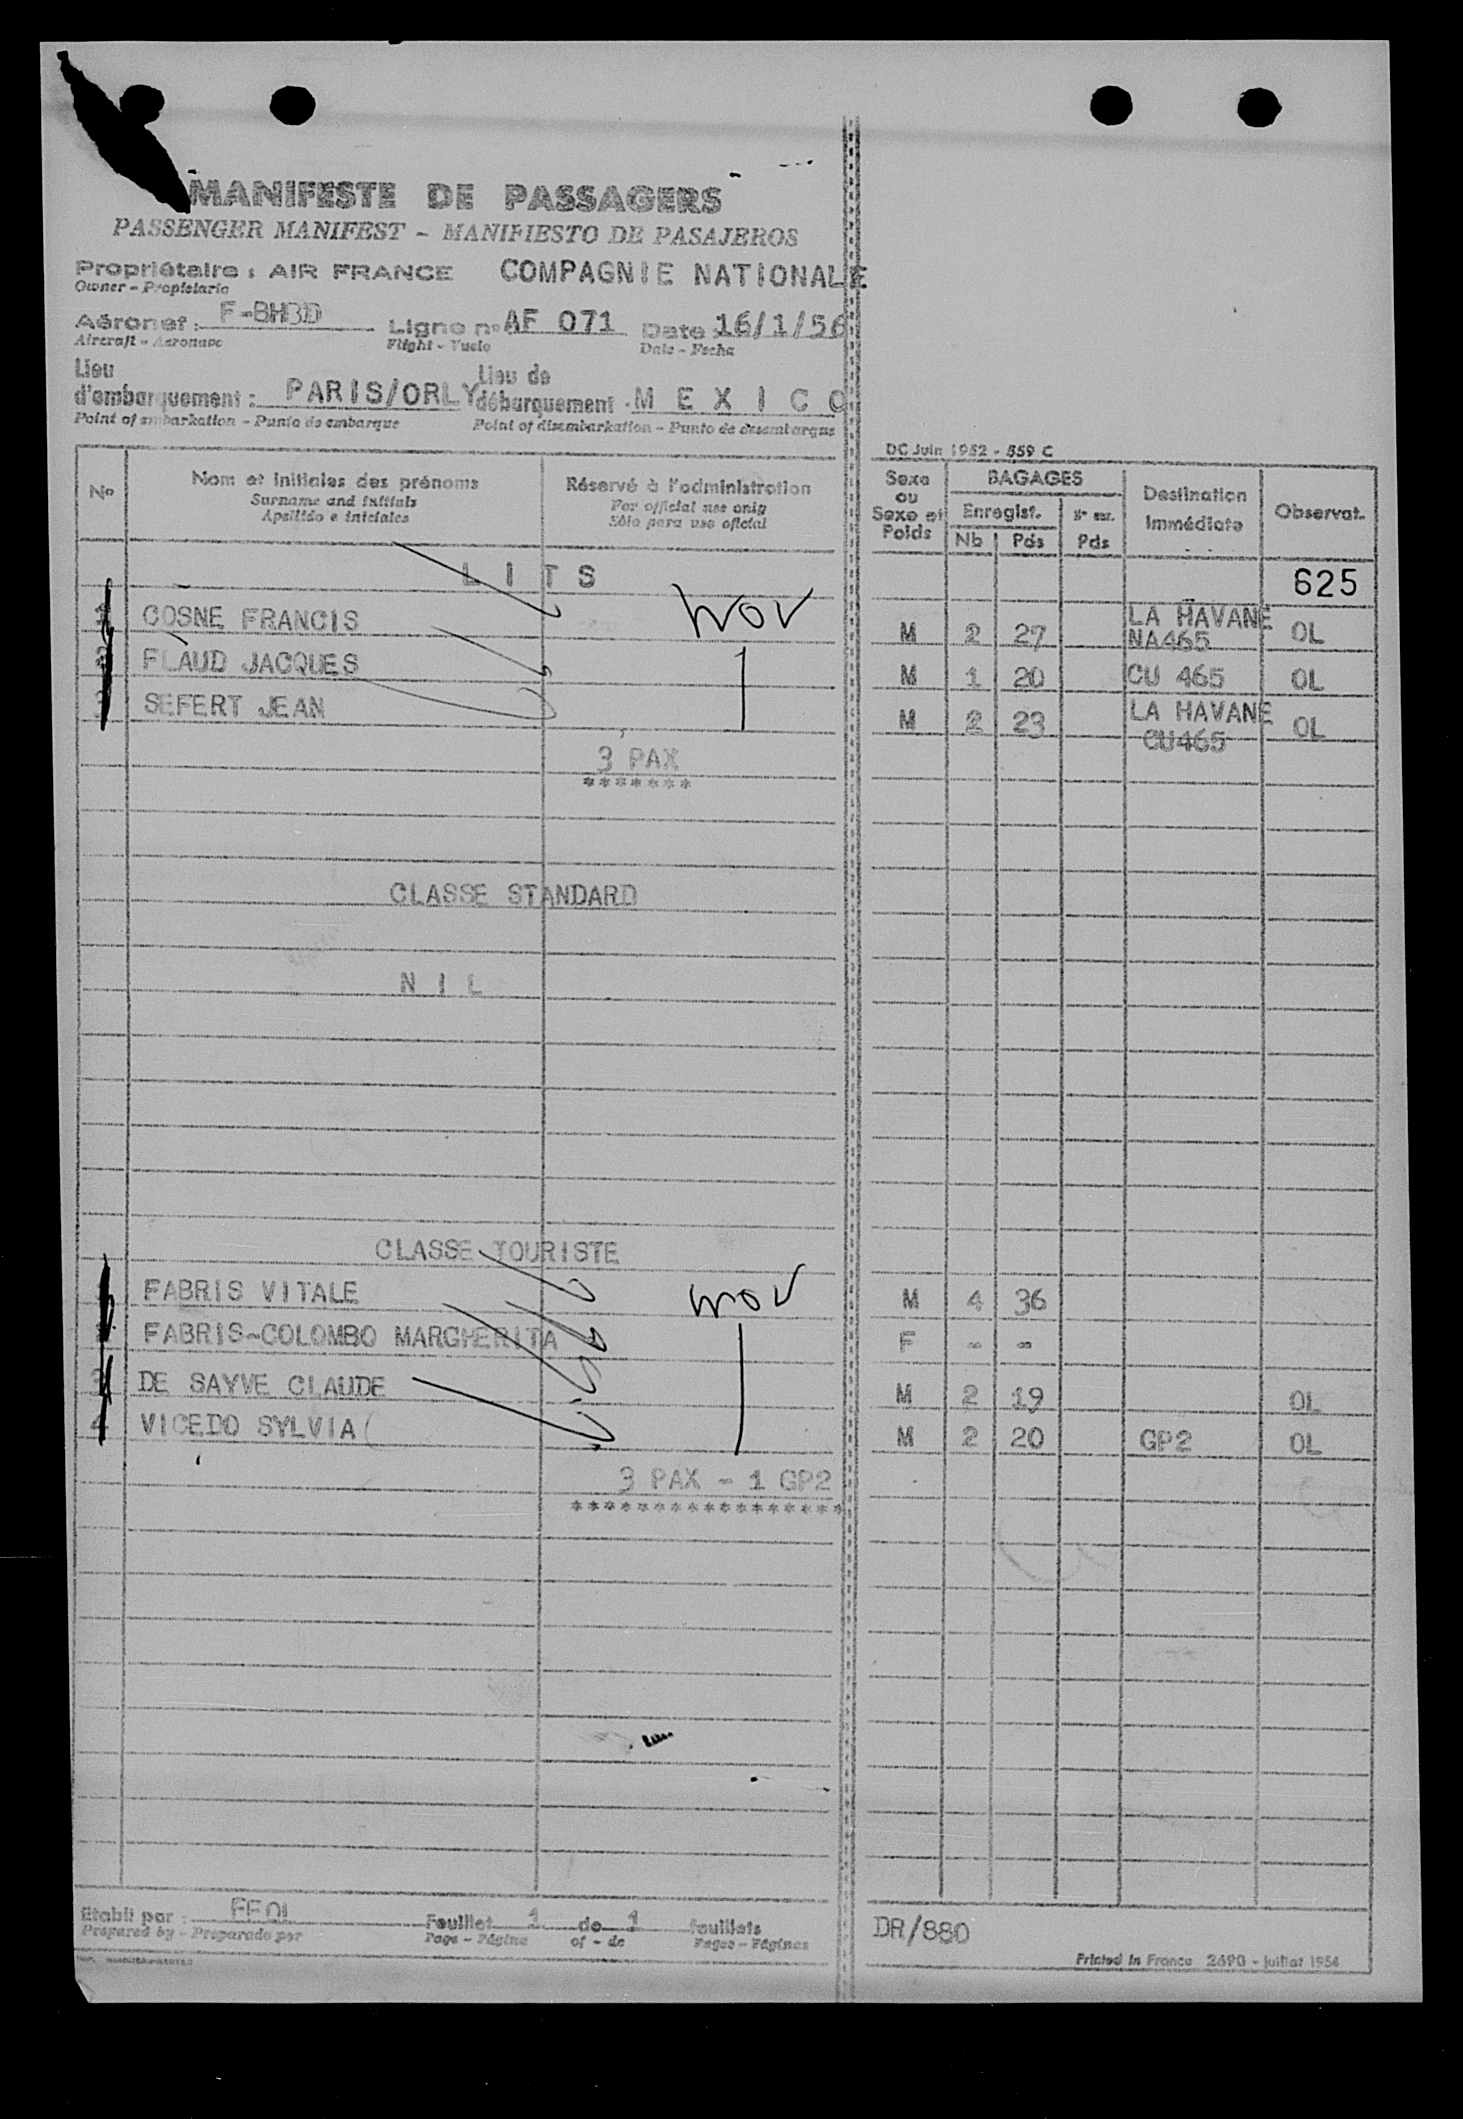 MANIFESTE DE PASSAGERS
PASSENGER MANIFEST - MANIFIESTO DE PASAJEROS
Propriétaire : AIR FRANCE COMPAGNIE NATIONALE
Owner - Propietario
Aéronef : F-BHBD Ligne n° AF 071 Date 16/1/56
Aircraft - Aeronave Flight - Vuelo Date - Fecha
Lieu d'embarquement : PARIS/ORLY Lieu de débarquement . M E X I C O
Point of embarkation - Punto de embarque Point of disembarkation - Punto de desembarque
DC Juin 1952 - 559 C
N° Nom et initiales des prénoms Réservé à l'administration Sexe ou Sexe et Poids BAGAGES Destination Immédiate Observat.
Surname and initials For official use only Enregist.
Apellido e iniciales Sólo para uso oficial Nb Pds Pds
L I T S 625
COSNE FRANCIS M 2 27 LA HAVANE NA465 OL
FLAUD JACQUES M 1 20 CU 465 OL
SEFERT JEAN M 2 23 LA HAVANE CU465 OL
3 PAX
*******
CLASSE STANDARD
N I L
CLASSE TOURISTE
FABRIS VITALE M 4 36
FABRIS-COLOMBO MARGHERITA F - -
3 DE SAYVE CLAUDE M 2 19 OL
4 VICEDO SYLVIA( M 2 20 GP2 OL
3 PAX - 1 GP2
*****************
Etabli par : Feuillet 1 de 1 feuillets
Prepared by - Preparado por Page - Página of - de Pages - Páginas
DR/880
Printed in France 2690 - juillet 1954